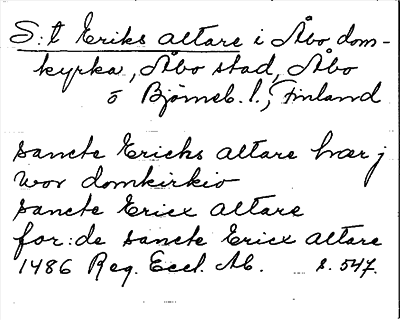 S:t Eriks altare i Åbo dom-
kyrka, Åbo stad, Åbo
o Björneb. l., Finland
sancte Erichs altare hær j
wor domkirkio
sancte Ericx altare
for:de sancte Ericx altare
1486 Reg. Eccl. Ab. s. 547.